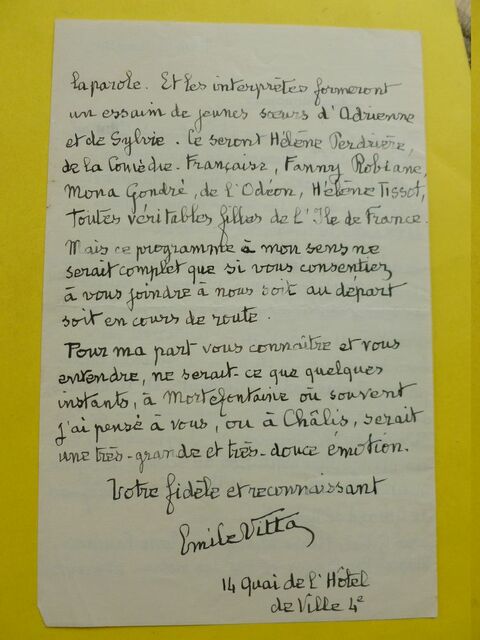 la parole. Et les interprètes formeront
un essaim de jeunes sœurs d'Adrienne
et de Sylvie. Ce seront Hélène Perdrière,
de la Comédie-Française, Fanny Robiane,
Mona Gondré, de l'Odéon, Hélène Tissot,
toutes véritables filles de l'Ile de France.
Mais ce programme à mon sens ne
serait complet que si vous consentiez
à vous joindre à nous soit au départ
soit en cours de route.
Pour ma part vous connaître et vous
entendre, ne serait-ce que quelques
instants, à Mortefontaine où souvent
j'ai pensé à vous, ou à Châlis, serait
une très-grande et très-douce émotion.
Votre fidèle et reconnaissant
Emile Vitta
14 Quai de l'Hôtel
de Ville 4e